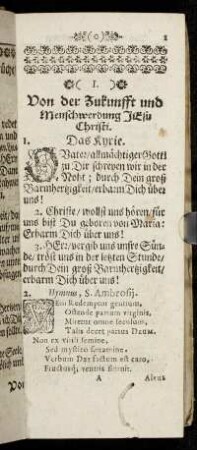 (o) 1
( I. )
Von der Zukunfft und
Menschwerdung JEsu
Christi.
1. Das Kyrie.
O Vater / allmächtiger Gott!
zu Dir schreyen wir in der
Noht; durch Dein groß
Barmhertzigkeit / erbarm Dich über
uns!
2. Christe / wollst uns hören / für
uns bist Du geboren von Maria:
Erbarm Dich über uns!
3. HErr / vergib uns unsre Sün-
de / tröst uns in der letzten Stunde /
durch Dein groß Barmhertzigkeit /
erbarm Dich über uns!
2. Hymnus, S. Ambrosij.
VEni Redemptor gentium,
Ostende partum virginis,
Miretur omne seculum,
Talis decet partus DEUM.
Non ex virili semine,
Sed mystico spiramine,
Verbum DEI factum est caro,
Fructusq́; ventris floruit.
A